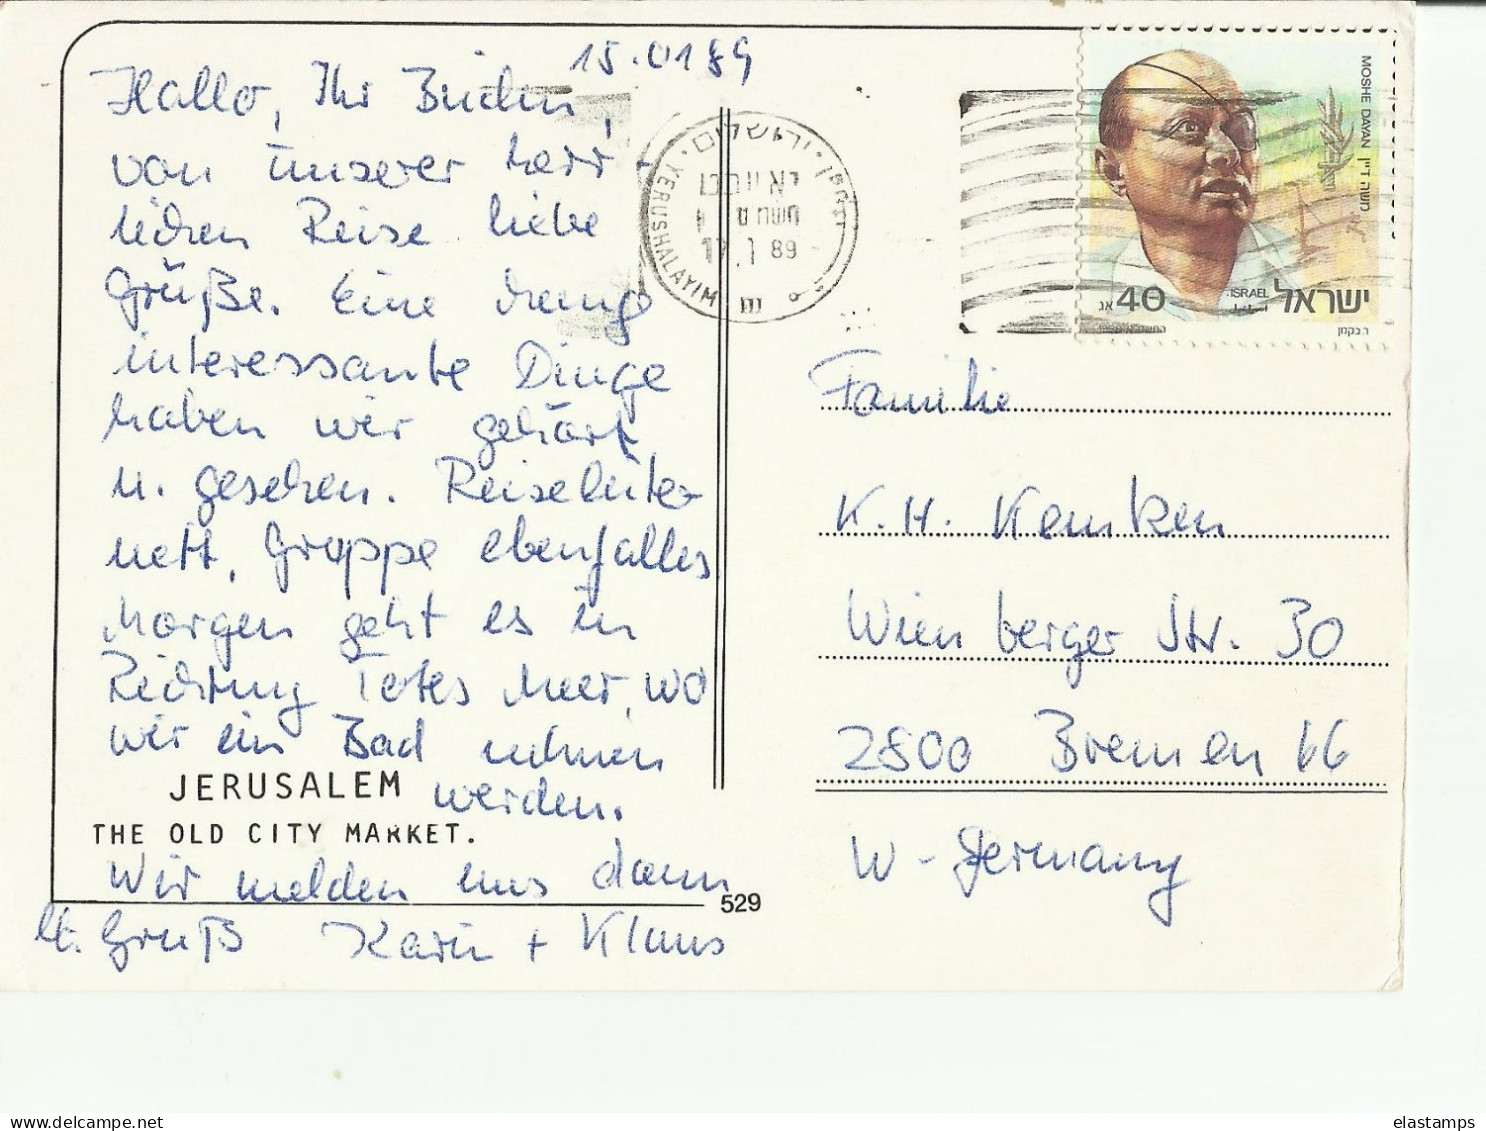 15.01.89
Hallo, Ihr Beiden,
von unserer herr-
lichen Reise liebe
Grüße. Eine Menge
interessante Dinge
haben wir gehört
u. gesehen. Reiseleiter
nett, Gruppe ebenfalls
Morgen geht es in
Richtung Totes Meer, wo
wir ein Bad nehmen
werden.
JERUSALEM
THE OLD CITY MARKET.
Wir melden uns dann
Gruß Karin + Klaus
529
ירושלים
YERUSHALAYIM
17.1 89
MOSHE DAYAN משה דיין
40 אג
ISRAEL ישראל
ר. בקמן
Familie
K. H. Kemken
Wienberger Str. 30
2800 Bremen 66
W-Germany
elastamps